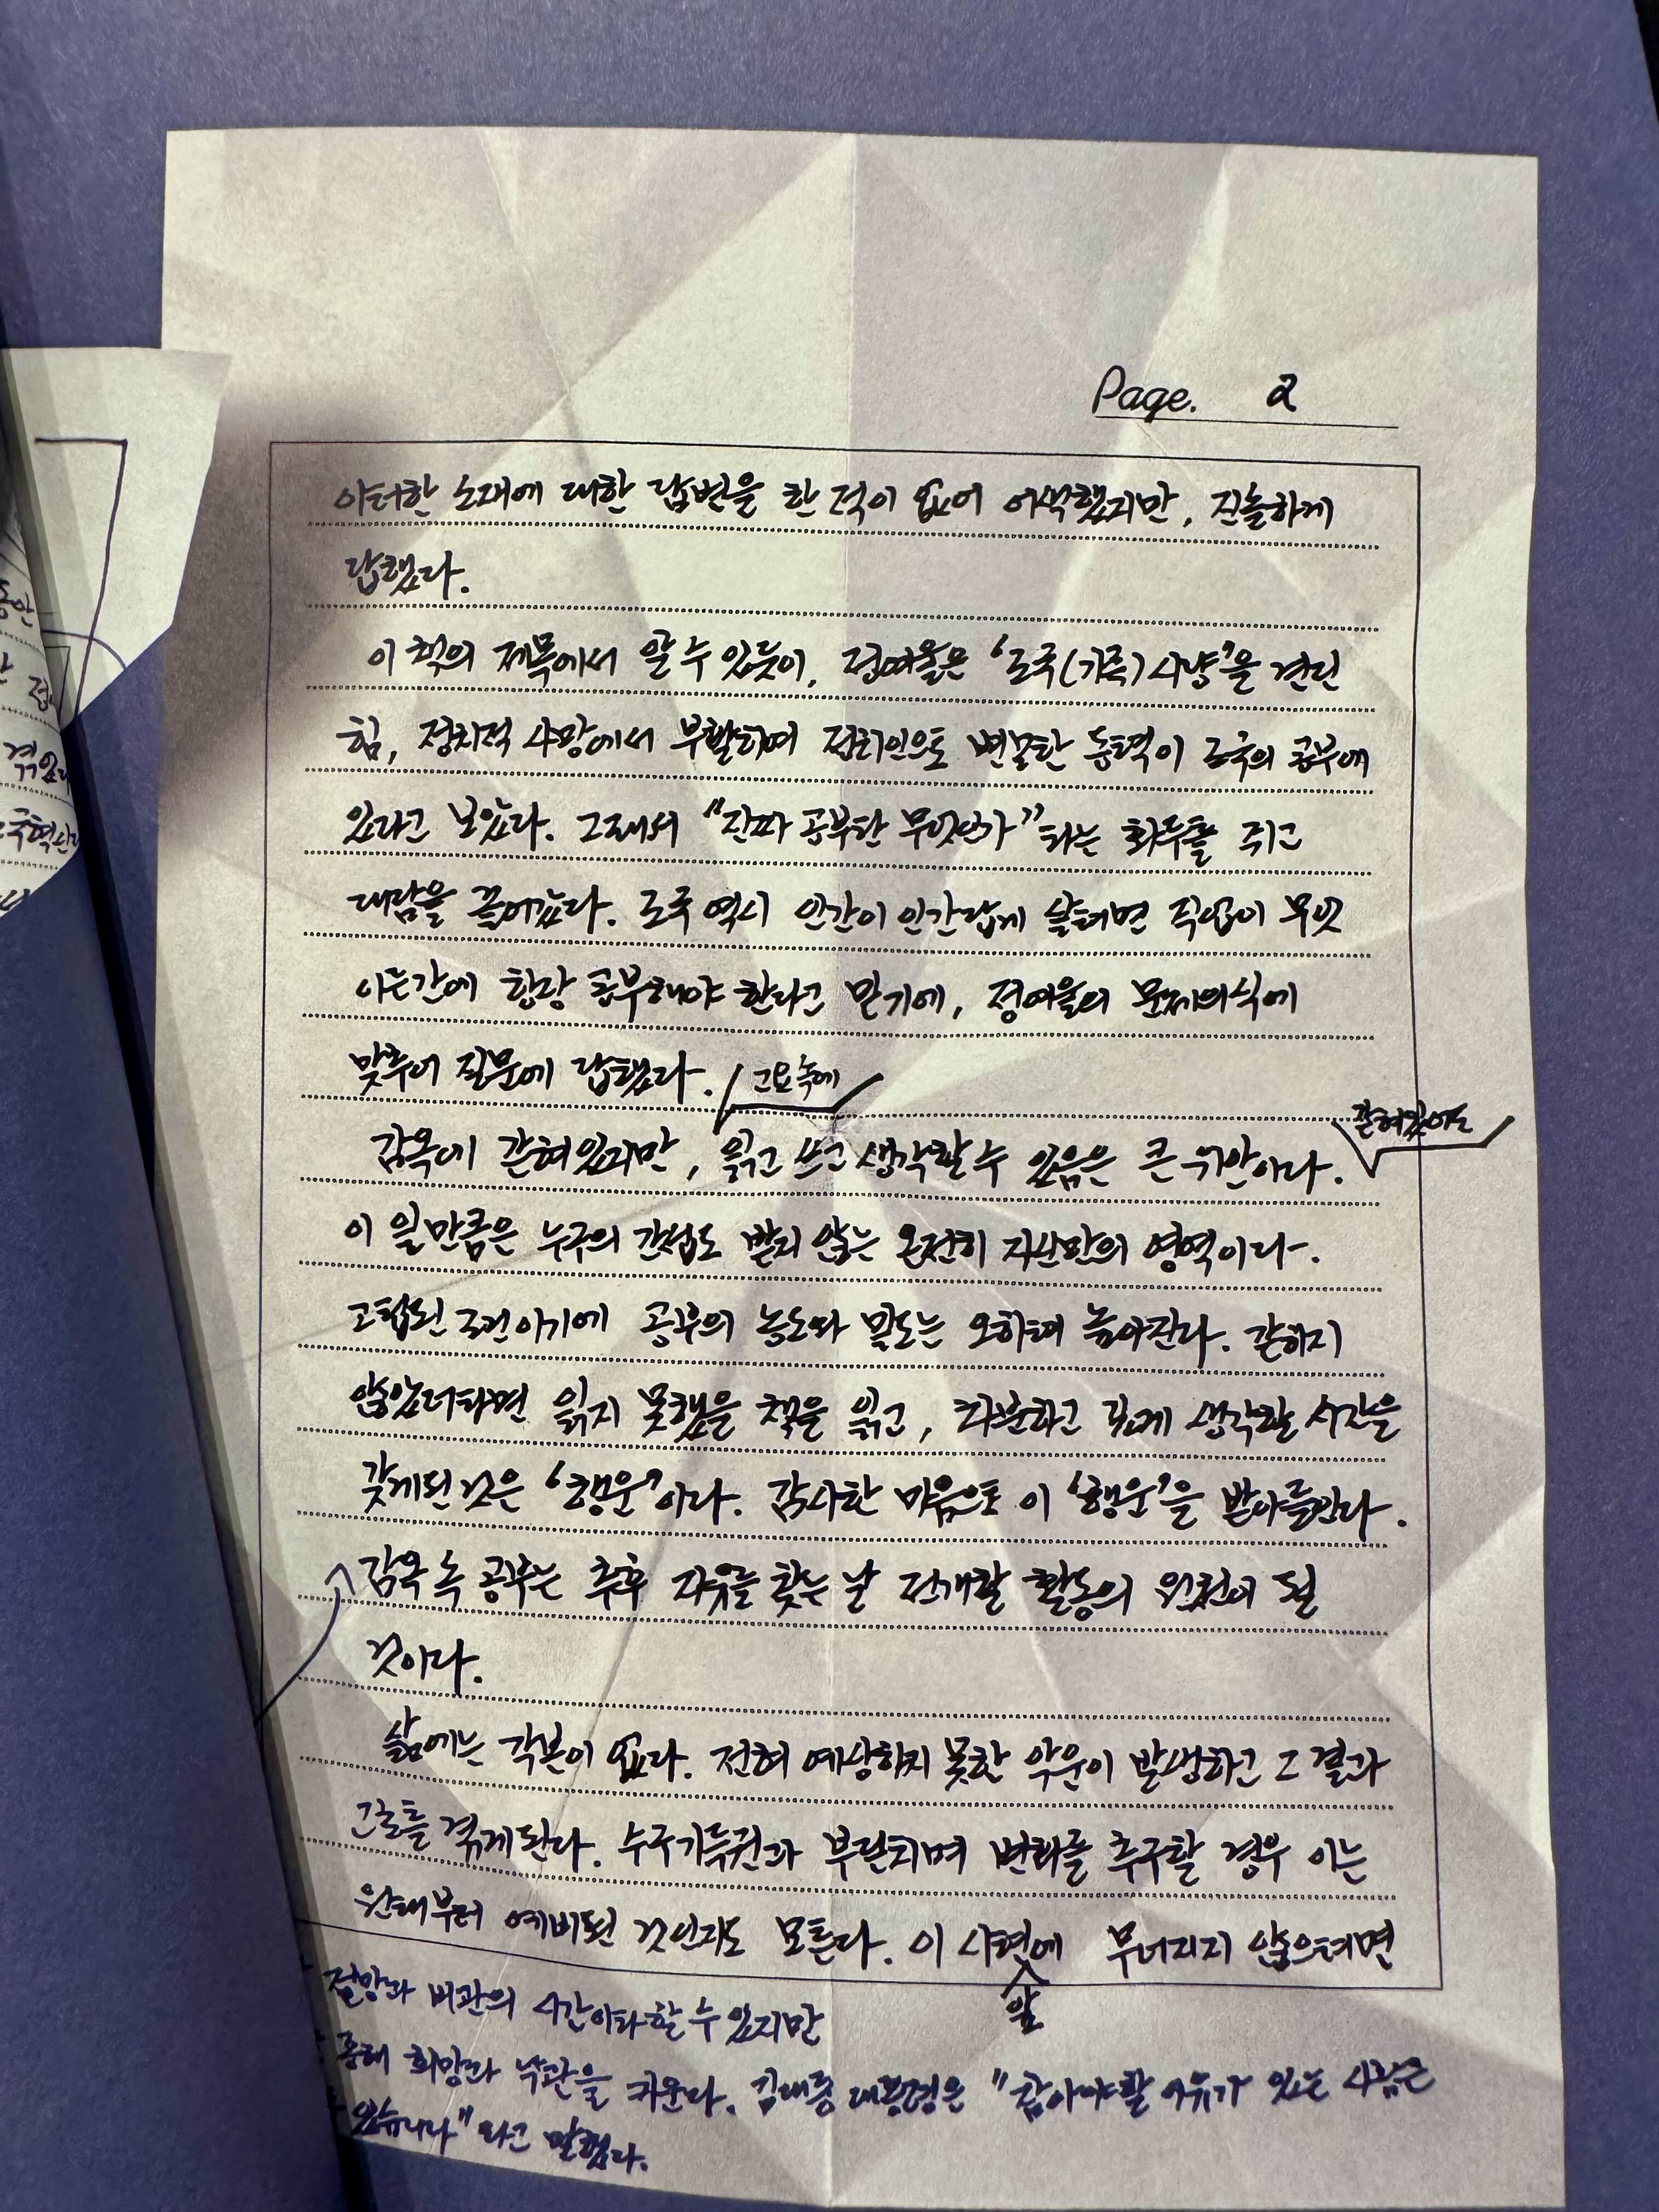 Page. 2
이러한 소재에 대한 답변을 한 적이 없어 어색했지만, 진솔하게
답했다.
이 책의 제목에서 알 수 있듯이, 정여울은 '조국(가족) 사냥'을 견딘
힘, 정치적 사망에서 부활하여 정치인으로 변모한 동력이 조국의 공부에
있다고 보았다. 그래서 "진짜 공부란 무엇인가"라는 화두를 쥐고
대담을 끌어갔다. 조국 역시 인간이 인간답게 살려면 직업이 무엇
이든간에 항상 공부해야 한다고 믿기에, 정여울의 문제의식에
맞추어 질문에 답했다.
고요 속에
갇혀있어도
감옥에 갇혀있지만, 읽고 쓰고 생각할 수 있음은 큰 위안이다.
이 일만큼은 누구의 간섭도 받지 않는 온전히 자신만의 영역이다.
고립된 조건이기에 공부의 농도와 밀도는 오히려 높아진다. 갇히지
않았더라면 읽지 못했을 책을 읽고, 차분하고 깊게 생각할 시간을
갖게된 것은 '행운'이다. 감사한 마음으로 이 '행운'을 받아들인다.
감옥 속 공부는 추후 자유를 찾는 날 전개할 활동의 원천이 될
것이다.
삶에는 각본이 없다. 전혀 예상하지 못한 악운이 발생하고 그 결과
고초를 겪게된다. 수구기득권과 부딪치며 변화를 추구할 경우 이는
원래부터 예비된 것인지도 모른다. 이 시련에 무너지지 않으려면
앞
절망과 비관의 시간이라 할 수 있지만
통해 희망과 낙관을 키운다. 김대중 대통령은 "참아야 할 이유가 있는 사람은
있습니다"라고 말했다.
동안
겪었